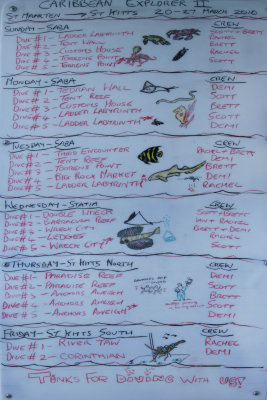 CARIBBEAN EXPLORER II
ST MAARTEN → ST KITTS 20-27 MARCH 2010
SUNDAY - SABA CREW
DIVE #1 - LADDER LABYRINTH SCOTT + BRETT
DIVE #2 - TENT WALL RACHEL
DIVE #3 - CUSTOMS HOUSE BRETT
DIVE #4 - TORRENS POINT
DIVE #5 - TORRENS POINT SCOTT
MONDAY - SABA CREW
DIVE #1 - TEDRAN WALL DEMI
DIVE #2 - TENT REEF SCOTT
DIVE #3 - CUSTOMS HOUSE BRETT
DIVE #4 - LADDER LABYRINTH SCOTT
DIVE #5 - LADDER LABYRINTH DEMI
TUESDAY - SABA CREW
DIVE #1 - THIRD ENCOUNTER RACHEL + BRETT
DIVE #2 - TENT REEF DEMI
DIVE #3 - TORRENS POINT BRETT
DIVE #4 - BIG ROCK MARKET DEMI
DIVE #5 - LADDER LABYRINTH RACHEL
WEDNESDAY - STATIA CREW
DIVE #1 - DOUBLE WRECK SCOTT + BRETT
DIVE #2 - BARRACUDA REEF RACHEL
DIVE #3 - WRECK CITY BRETT + DEMI
DIVE #4 - LEDGES RACHEL
DIVE #5 - WRECK CITY SCOTT
THURSDAY - ST KITTS NORTH CREW
DIVE #1 - PARADISE REEF DEMI
DIVE #2 - PARADISE REEF SCOTT
DIVE #3 - ANCHORS AWEIGH BRETT
DIVE #4 - ANCHORS AWEIGH SCOTT
DIVE #5 - ANCHORS AWEIGH DEMI
FRIDAY - ST KITTS SOUTH CREW
DIVE #1 - RIVER TAW RACHEL
DIVE #2 - CORINTHIAN DEMI
THANKS FOR DIVING WITH US!